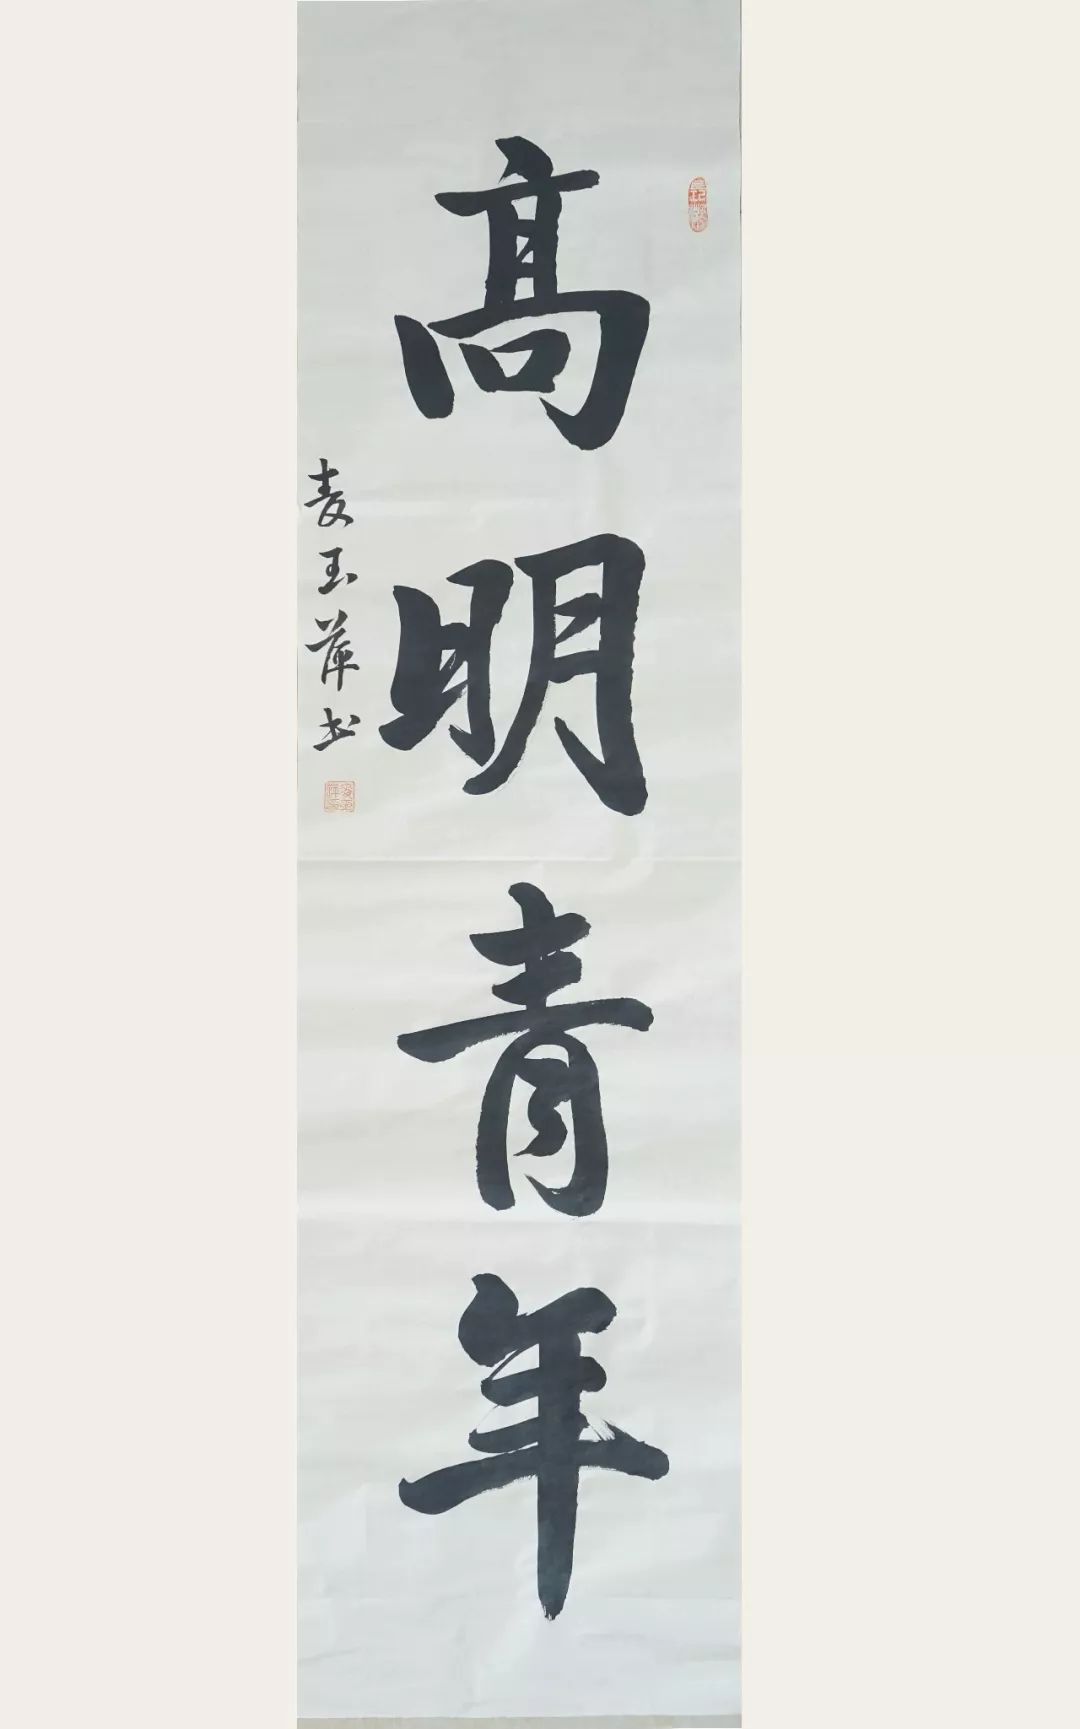 高明青年
麦玉萍书